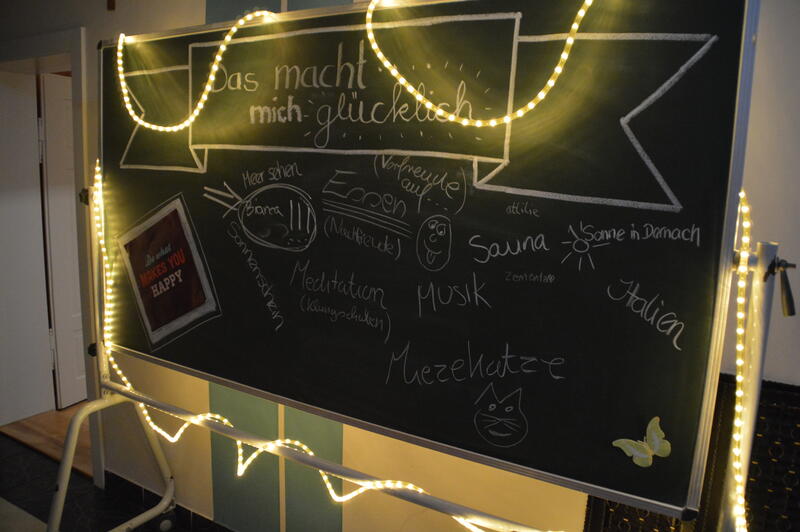 Das macht
mich glücklich
Meer sehen
Bianca
Essen
(Vorfreude
auf....)
(Nachfreude)
Sonnenschein
Do what
MAKES YOU
HAPPY
Meditation
(Klangschalen)
MUSIK
Sauna
Sonne in Dornach
Italien
Miezekatze